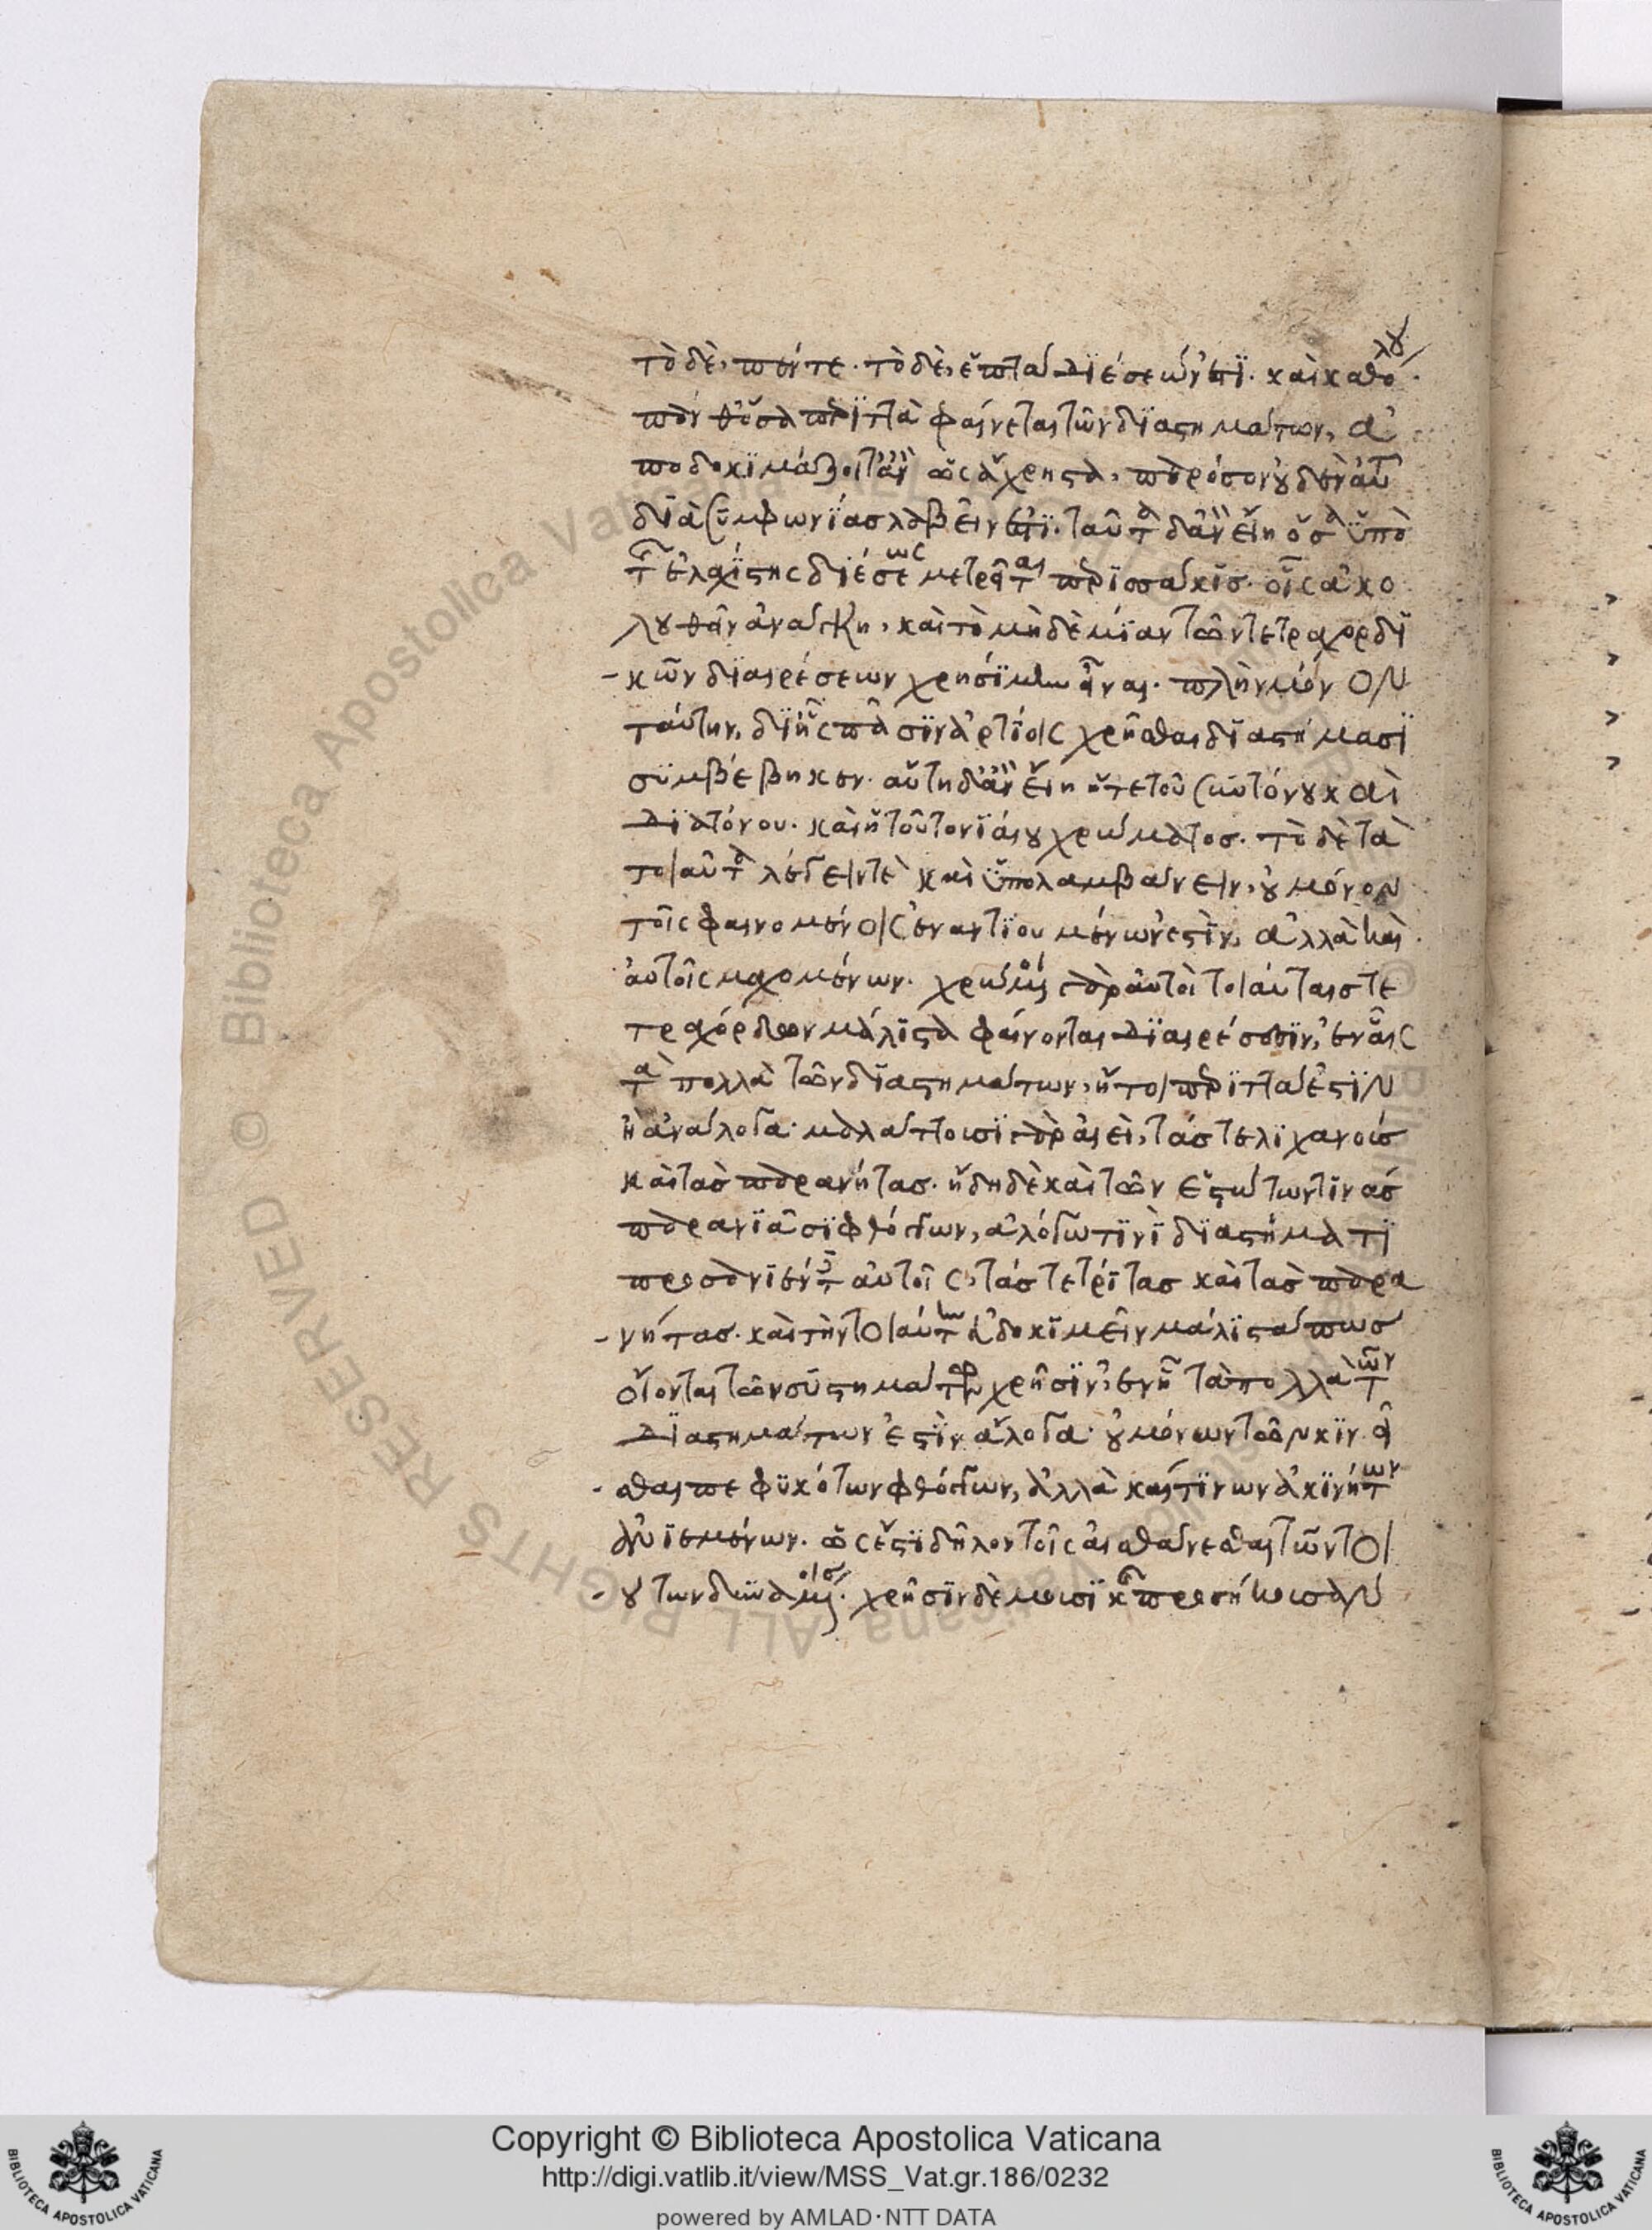 τὸ δὲ, πέντε· τὸ δὲ, ἑπτὰ διέσεών ἐστι· καὶ καθόλου
πᾶν θ' ὅσα περιττὰ φαίνεται τῶν διαστημάτων, ἀ
ποδοκιμάζοιτ' ἂν ὡς ἄχρηστα, παρόσον οὐδὲν αὐτῶν
διὰ συμφωνίας λαβεῖν ἐστι· ταῦτα δ' ἂν εἴη ὅσα ὑπὸ
τῆς ἐλαχίστης διέσεως μετρεῖται περισσάκις· οἷς ἀκο
λουθεῖν ἀνάγκη, καὶ τὸ μηδὲ μίαν τῶν τετραχορδι
κῶν διαιρέσεων χρησίμην εἶναι· πλὴν μόνον
ταύτην, δι' ἧς πᾶσιν ἀρτίοις χρῆσθαι διαστήμασι
συμβέβηκεν· αὕτη δ' ἂν εἴη ἥ τε τοῦ συντόνου καὶ
διατόνου· καὶ ἡ τοῦ τονιαίου χρώματος· τὸ δὲ τὰ
τοιαῦτα λέγειν τὲ καὶ ὑπολαμβάνειν, οὐ μόνον
τοῖς φαινομένοις ἐναντιουμένων ἐστὶν, ἀλλὰ καὶ
αὑτοῖς μαχομένων· χρώμενοι γὰρ αὐτοὶ τοιαύταις τε
τραχόρδων μάλιστα φαίνονται διαιρέσεσιν, ἐν αἷς
τὰ πολλὰ τῶν διαστημάτων, ἤτοι περιττά ἐστιν
ἢ ἄλογα· μαλάττουσι γὰρ ἀεὶ, τάς τε λιχανοὺς
καὶ τὰς παρανήτας· ἤδη δὲ καὶ τῶν ἑστώτων τινὰς
παρανιᾶσι φθόγγων, ἀλόγῳ τινὶ διαστήματι
προσανιέντες αὐτοῖς, τάς τε τρίτας καὶ τὰς παρα
νήτας· καὶ τὴν τοιαύτην εὐδοκιμεῖν μάλιστά πως
οἴονται τῶν συστημάτων χρῆσιν, ἐν ᾗ τὰ πολλὰ τῶν
διαστημάτων ἐστὶν ἄλογα· οὐ μόνον τῶν κινεῖ
σθαι πεφυκότων φθόγγων, ἀλλὰ καί τινων ἀκινήτων
ἀνιεμένων· ὡς ἔστι δῆλον τοῖς αἰσθάνεσθαι τῶν τοι
ούτων δυναμένοις· χρῆσιν δὲ μουσικῆς προσήκουσαν